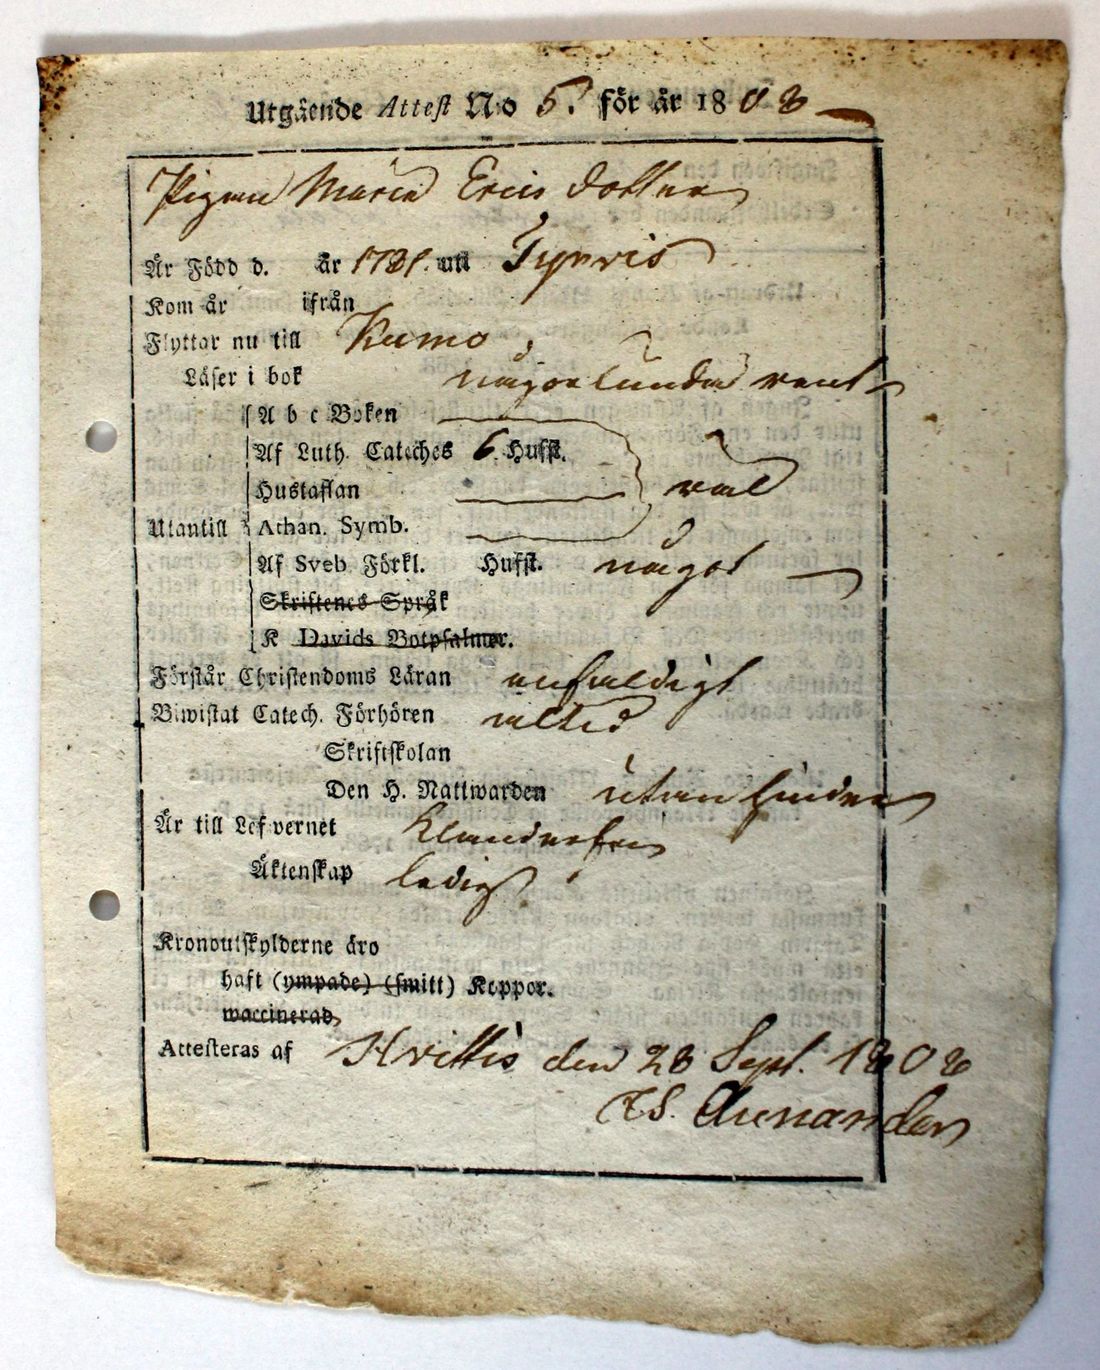 Utgående Attest No 5. för år 1808
Pigan Maria Ericsdotter
Är Född d. år 1781. uti
Kom år ifrån
Flyttar nu till Kumo,
Läser i bok någorlunda rent
A b c Boken
Af Luth. Cateches 6. Hufst.
Hustaflan väl
Utantill Athan. Symb.
Af Sveb Förkl. Hufst. något
Skriftenes Språk
K Davids Botpsalmer.
Förstår Christendoms Läran enfaldigt
Biwistat Catech. Förhören alltid
Skriftskolan
Den H. Nattwarden utan hinder
Är till Lefvernet Klanderfri
Äktenskap ledig
Kronoutskylderne äro
haft (ympade) (smitt) Koppor.
waccinerad,
Attesteras af Hvittis den 28 Sept. 1808